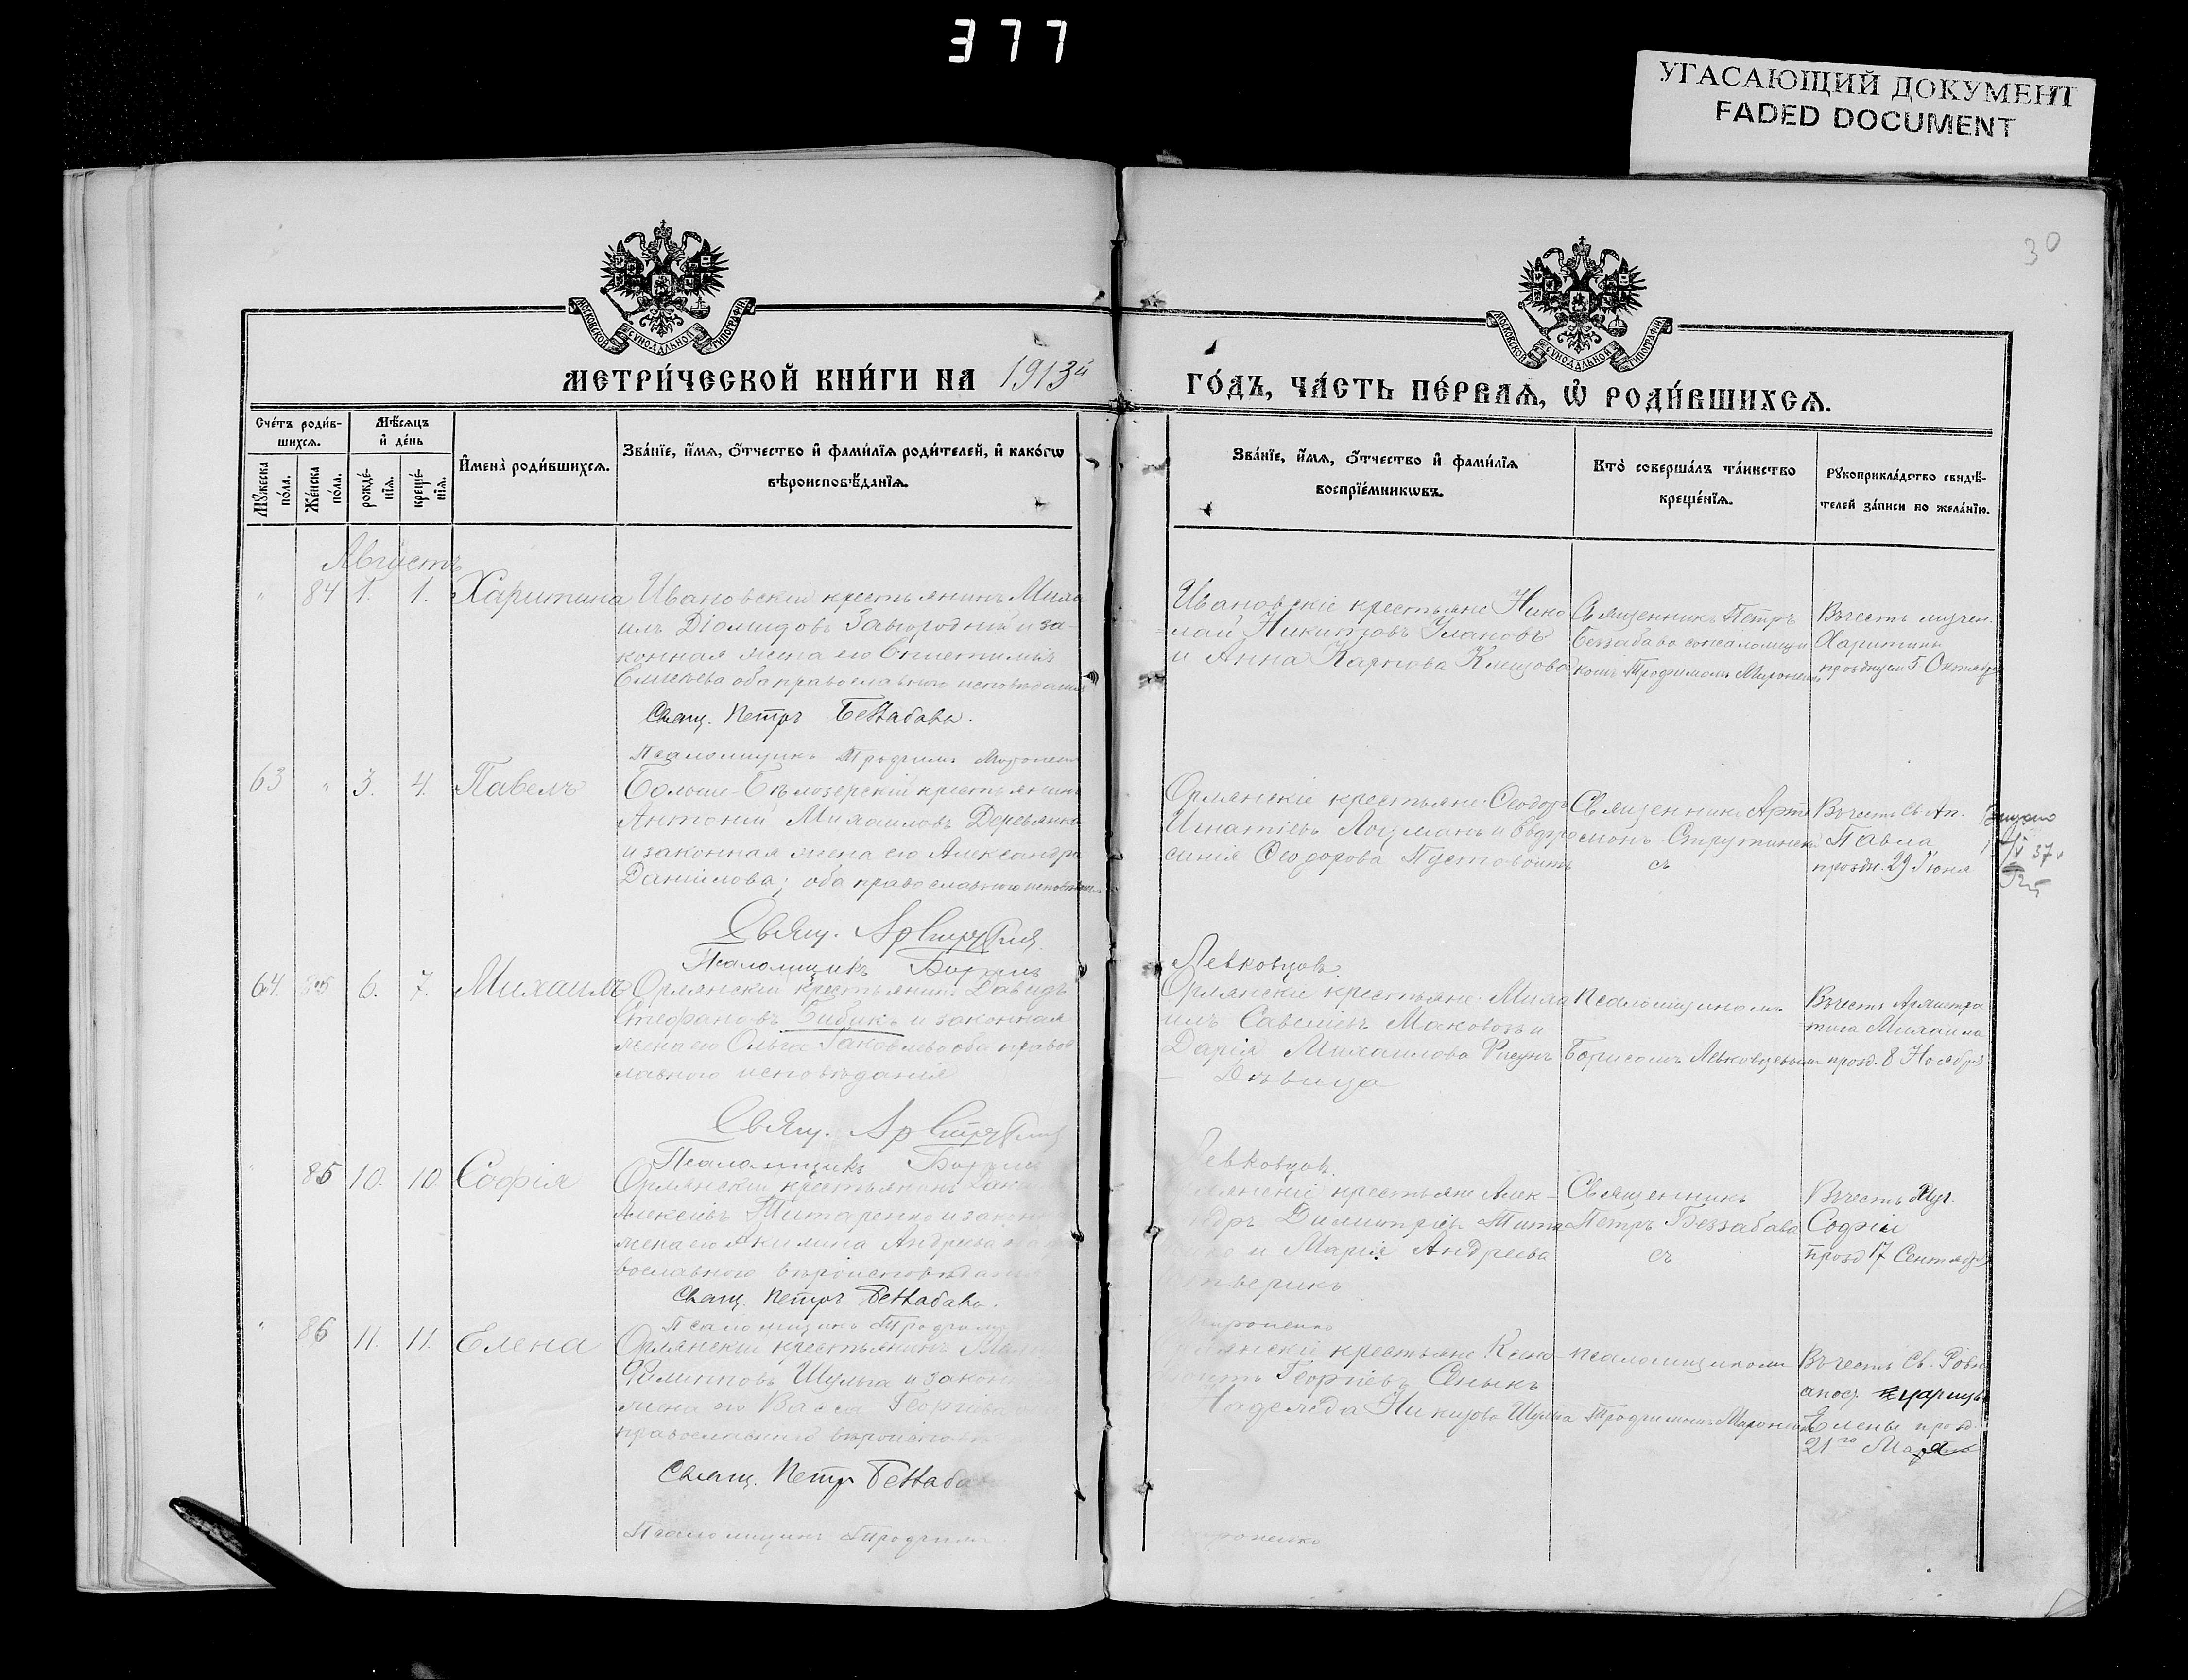 377
УГАСАЮЩИЙ ДОКУМЕНТ
FADED DOCUMENT
30
МОСКОВСКОЙ СѴНОДАЛЬНОЙ ТИПОГРАФІИ
МОСКОВСКОЙ СѴНОДАЛЬНОЙ ТИПОГРАФІИ
МЕТРИ́ЧЕСКОЙ КНИ́ГИ НА 1913й
ГО́ДЪ, ЧА́СТЬ ПЕ́РВАѦ, Ѡ҆ РОДИ́ВШИХСѦ.
Сче́тъ роди́в-
шихсѧ.
Мѣ́сѧцъ
и҆ де́нь
Мꙋ́жеска
по́ла.
Же́нска
по́ла.
рожде́-
нїѧ.
креще́-
нїѧ.
И҆мена̀ роди́вшихсѧ.
Зва́нїе, и҆́мѧ, ѻ҆́тчество и҆ фами́лїѧ роди́телей, и҆ како́гѡ
вѣроисповѣ́данїѧ.
Зва́нїе, и҆́мѧ, ѻ҆́тчество и҆ фами́лїѧ
воспрїе́мникѡвъ.
Кто̀ соверша́лъ та́инство
креще́нїѧ.
Рꙋкоприкла́дство свидѣ́-
телей за́писи по жела́нїю.
Августъ
" 84 1. 1. Харитина
Ивановскій крестьянинъ Миха
илъ Діомидовъ Завгородній и за-
конная жена его Епистимія
Елисѣева оба православнаго исповѣданія
Свящ. Петръ Беззабава.
Псаломщикъ Трофимъ Мироненко
Ивановскіе крестьяне Нико
=лай Никитовъ Улановъ
и Анна Карпова Клецова
Священникъ Петръ
Беззабава сопсаломщи
комъ Трофимомъ Мироненк
Въ честь мучен.
Харитины
празднуем 5 Октября
63 " 3. 4. Павелъ
Больше-Бѣлозерскій крестьянинъ
Антоній Михаиловъ Деревянко
и законная жена его Александра
Даніилова; оба православнаго исповѣданія
Свящ. Ар Струтинс
Псаломщикъ Борисъ
Левковцов.
Орлянскіе крестьяне Ѳеодоръ
Игнатіевъ Лоцманъ и Евдро
синія Ѳеодорова Пустовоитъ
Священникъ Арте
монъ Струтинск
съ
Въ честь Св. Ап.
Павла
праздн. 29 Іюня
37
64. 85 6. 7. Михаилъ
Орлянскій крестьянинъ Давидъ
Стефановъ Бибикъ и законная
жена его Ольга Іаковлева оба право
славнаго исповѣданія
Свящ. Ар Струтинс
Псаломщикъ Борис
Левковцов.
Орлянскіе крестьяне Миха
илъ Савеліевъ Маковозъ и
Дарія Михаилова
Дѣвица
псаломщикомъ
Борисомъ Левковцевымъ
Въ честь Архистра
тига Михаила
празд. 8 Ноября
" 85 10. 10. Софія
Орлянскій крестьянинъ
Алексіевъ Титаренко и закон
жена его Акилина Андреева
вославнаго вѣроисповѣданія
Свящ. Петръ Беззабава.
Псаломщикъ Трофимъ
Мироненко
крестьяне Алек-
Димитріевъ Тита
и Марія Андреева
Священникъ
Петръ Беззабава
съ
Въ честь Муч.
Софіи
празд 17 Сентября
" 86 11. 11. Елена
Орлянскій крестьянинъ
Филипповъ Шульга и закон
жена его Васса Георгіева
православнаго вѣроиспов
Свящ. Петръ Беззабав
Псаломщикъ Трофимъ
роненко
крестьяне Ксено
Георгіевъ Сеныкъ
Надежда Никитова Шульга
псаломщикомъ
Трофимомъ Мироненк
Въ честь Св. Равн
апос. царицы
Елены празд.
21го Мая